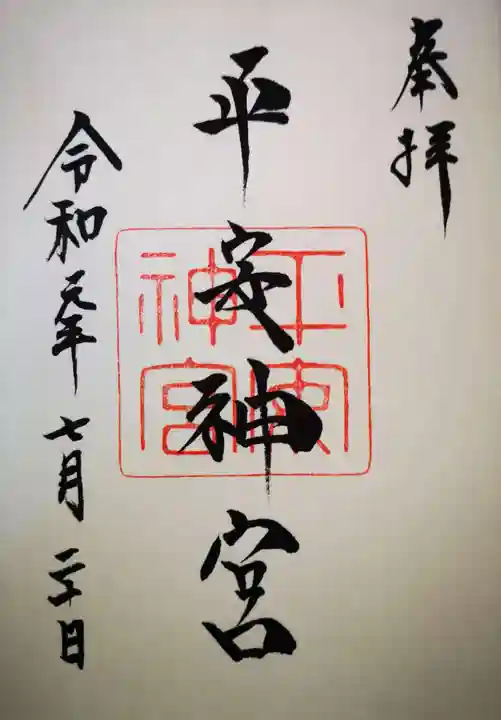 奉拝
平安神宮
平安神宮
令和元年七月二十日